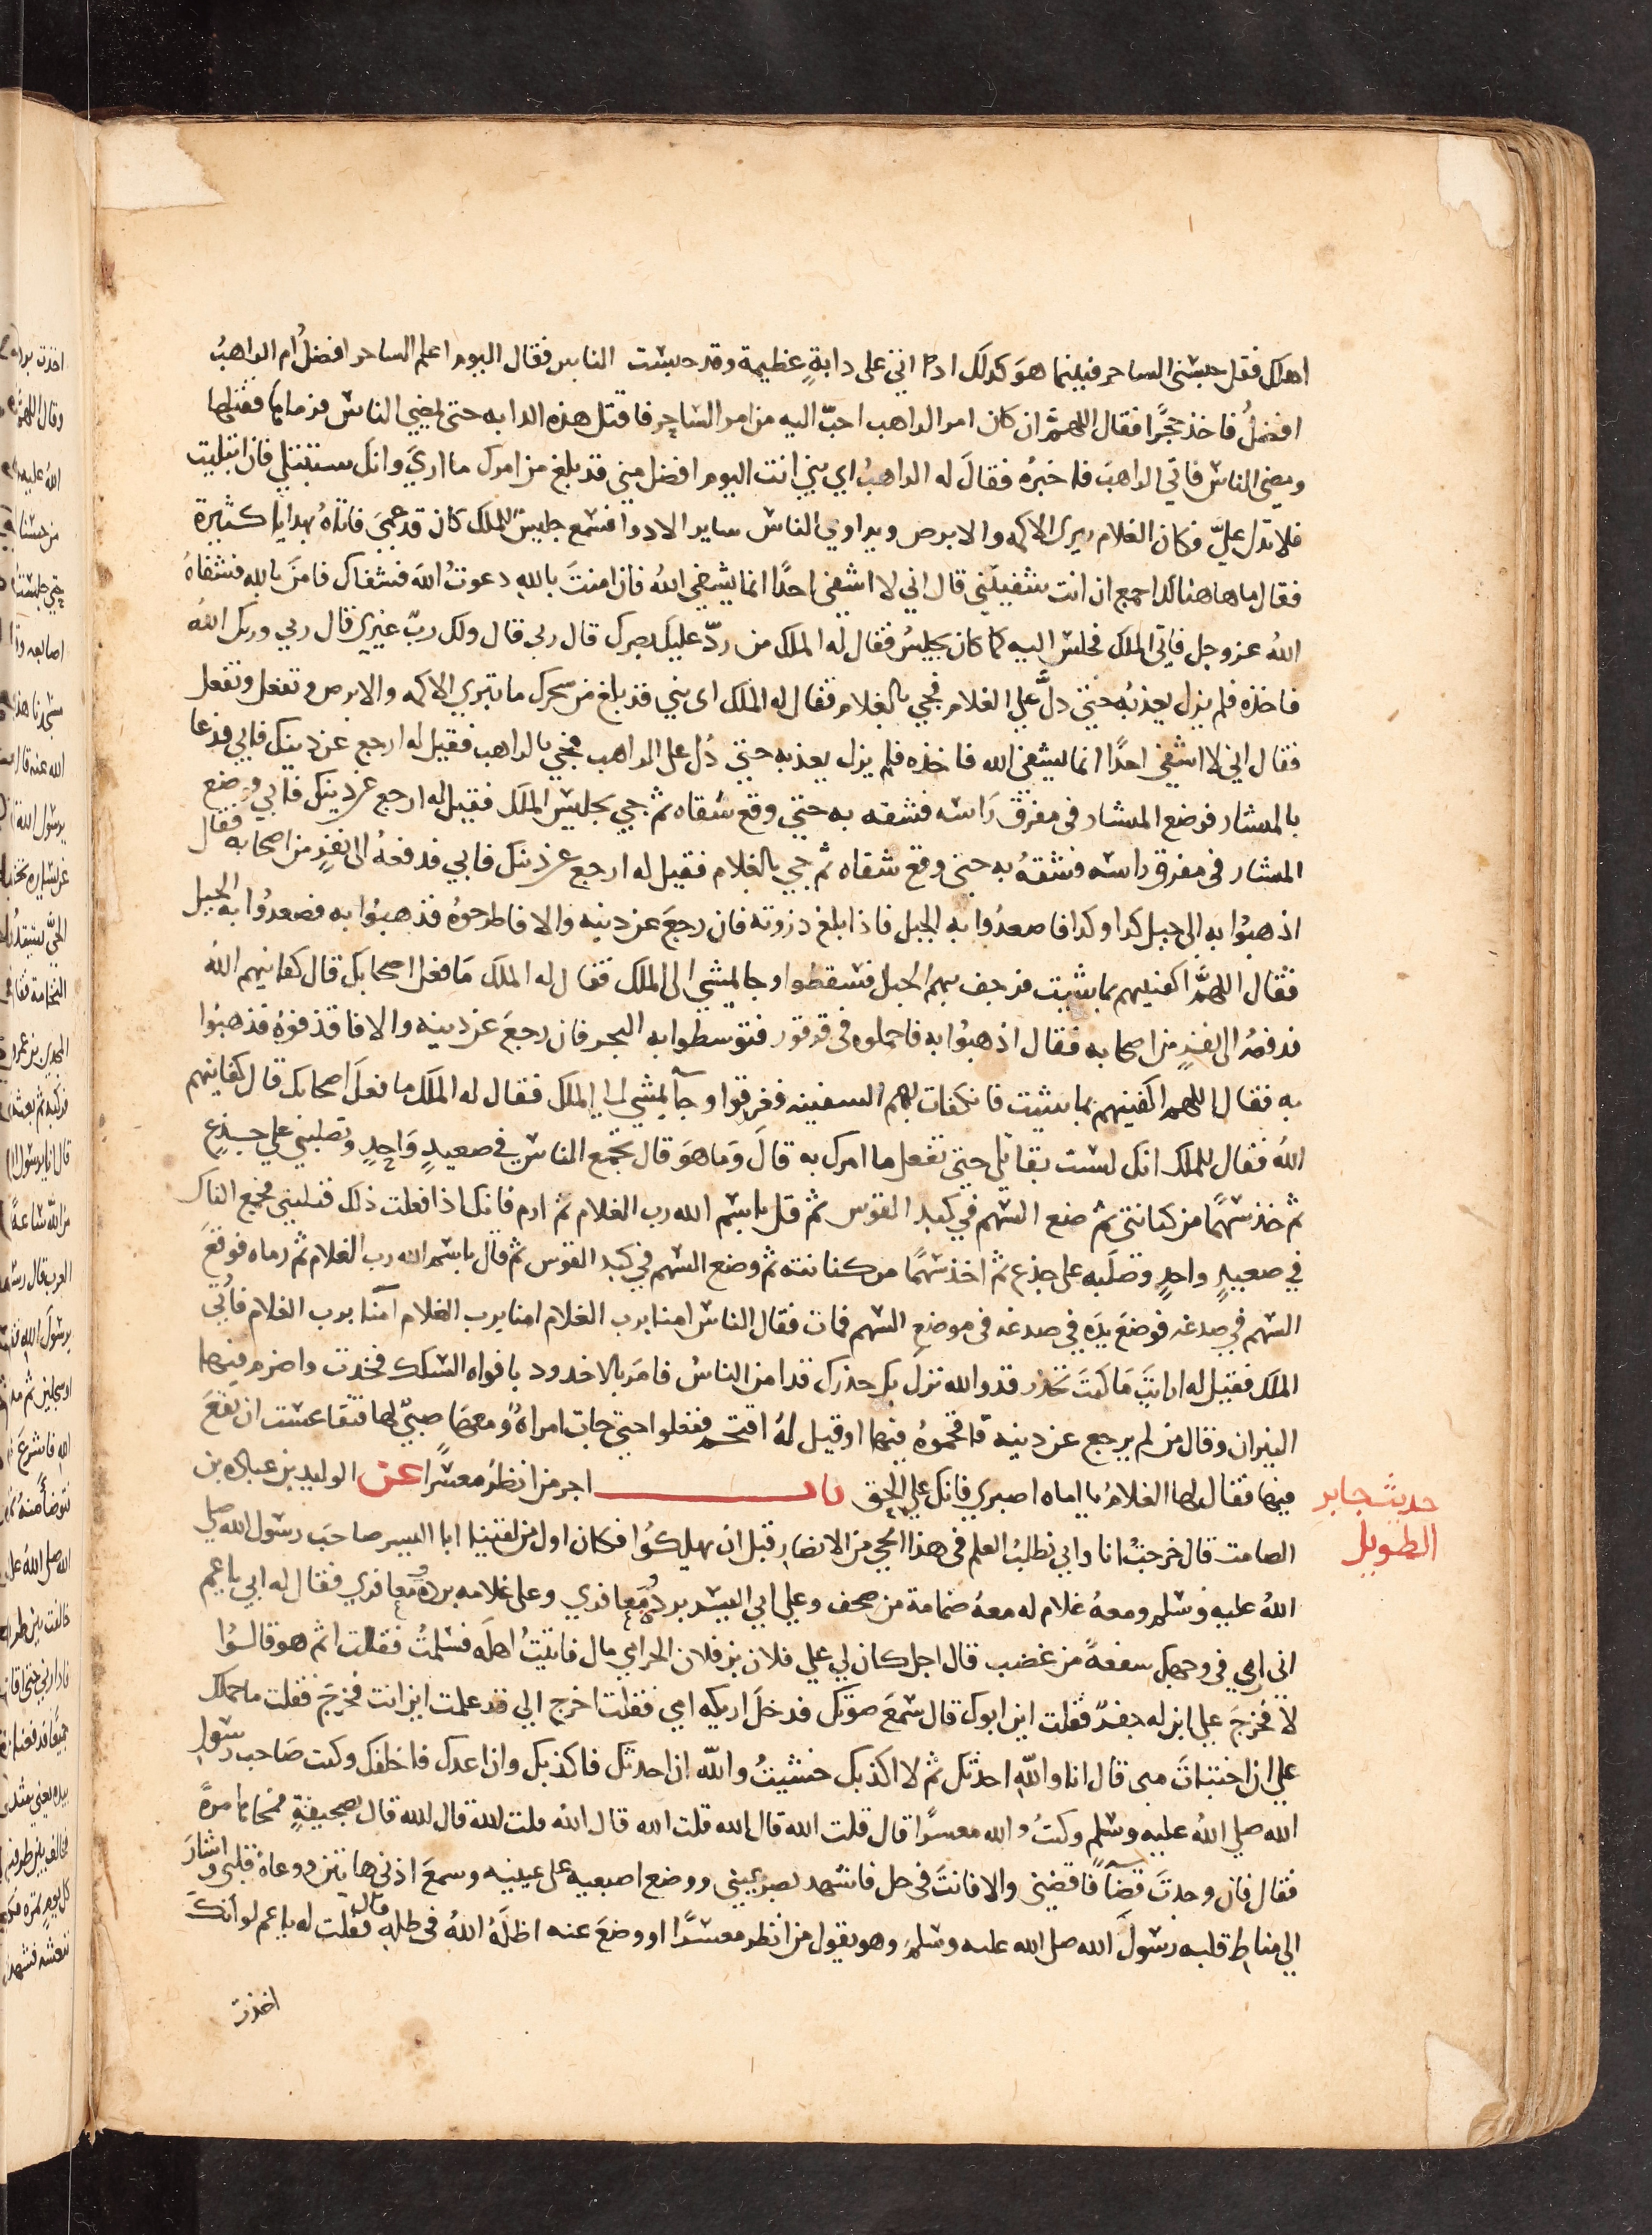 اهلك فقل حبسني الساحر فبينما هو كذلك اذ اتى على دابةٍ عظيمة وقد حبست الناس فقال اليوم اعلم الساحر افضلُ ام الراهبُ
افضلُ فاخذ حجرًا فقال اللهم ان كان امر الراهب احبّ اليه من امر الساحر فاقتل هذه الدابه حتى يمضي الناس فرماها فقتلها
ومضى الناس فاتي الراهبَ فاخبرهُ فقالَ له الراهبُ اي بني انت اليوم افضل مني قد بلغ من امرك ما اري وانك ستبتلي فان ابتليت
فلا تدل عليَّ فكان الغلام يبرى الاكمه والابرص ويداوي الناس ساير الادوا فسمع جليسٌ للملك كان قد عمىَ فاتاهُ بهدايا كثيرة
فقال ما هاهنا لك اجمع ان انت شفيتني قال اني لا اشفى احدًا انما يشفي اللهُ فان امنتَ باللهِ دعوتُ اللهَ فشفاك فامنَ بالله فشفاهُ
اللهُ عز وجل فاتي الملك فجلس اليه كما كان يجلسُ فقال له الملك من ردّ عليك بصرك قال ربى قال ولك ربّ غيرى قال ربي وربك اللهُ
فاخذه فلم يزل يعذبُه حتى دلَّ علي الغلام فجي بالغلام فقال له الملك اى بني قد بلغ من سحرك ما تبري الاكمه والابرص وتفعل وتفعل
فقال اني لا اشفي احدًا انما يشفى الله فاخذه فلم يزل يعذبه حتى دُل على الراهب فجي بالراهب فقيل له ارجع عن دينك فابي فدعا
بالمنشار فوضع المنشار فى مفرق رَاسه فشقه به حتى وقع شقاه ثم جي بجليس الملك فقيل له ارجع عن دينك فابي فوضع
المنشار فى مفرق راسه فشقهُ به حتى وقع شقاه ثم جي بالغلام فقيل له ارجع عن دينك فابي فدفعهُ الى نفرٍ من اصحابه فقال
اذهبُوا به الى جبل كذا وكذا فاصعدُوا به الجبل فاذا بلغ ذروته فان رجعَ عن دينه والا فاطرحوهُ فذهبُوا به فصعدُوا به الجبل
فقال اللهمَّ اكفنيهم بما شيت فرجف بهم الجبل فسقطوا وجا يمشي الى الملك فقال له الملك مَا فعل اصحابك قال كفانيهم اللهُ
فدفعهُ الى نفرٍ من اصحابه فقال اذهبُوا به فاحملوه فى قرقور فتوسطوا به البحر فان رجعَ عن دينه والا فاقذفوهُ فذهبُوا
به فقال اللهم اكفنيهم بما شيت فانكفات بهم السفينه فغرقوا وجآ يمشي الي الملك فقال له الملك ما فعلَ اصحابك قال كفانيهم
اللهُ فقال للملك انك لست بقاتلى حتى تفعل ما امرك به قالَ وَما هوَ قال تجمع الناس في صعيدٍ وَاحدٍ وتصلبني علي جذعٍ
ثم خذ سَهمًا من كنانتى ثم ضع السّهم في كبد القوس ثم قل باسم الله رب الغلام ثم ارم فانك اذا فعلت ذلك قتلتني فجمع الناس
في صعيدٍ واحدٍ وصلَبه على جذع ثم اخذ سَهمًا من كنانته ثم وضع السهم في كبد القوس ثم قال باسم الله رب الغلام ثم رماه فوقعَ
السهم في صدغه فوضعَ يدَه في صدغه فى موضع السهم فمات فقال الناس امنا برب الغلام امنا برب الغلام آمنّا برب الغلام فاُتي
الملك فقيل له ارايتَ مَا كنتَ تحذر قد والله نزل بك حذرك قد امن الناسُ فامَر بالاخدود بافواه السّكك فخدّت واضرم فيها
النيران وقال من لم يرجع عن دينه فاقحموهُ فيها او قيل لهُ اقتحم ففعلوا حتى جات امراةٌ ومعها صبيّ لها فتقاعست ان تقعَ
فيها فقال لها الغلامُ يا اماه اصبري فانك علي الحق باب اجر من انظر معسرًا عن الوليد بن عبادة بن
حديث جابر
الطويل
الصامت قال خرجتُ انا وابي نطلبُ العلم فى هذا الحي من الانصار قبل ان يهلكُوا فكان اول من لقينا ابا اليسر صاحبَ رسول الله صلي
اللهُ عليه وسلم ومعهُ غلام له معهُ ضمامة من صحف وعلي ابي اليسر بردٌ ومعافري وعلى غلامه بردٌ ومعافري فقال له ابي يا عم
انى اري في وجهك سفعةً من غضب قال اجل كان لي علي فلان بن فلان الحرامي مال فاتيتُ اهله فسلمتُ فقلت اثم هو قالُوا
لا فخرجَ علي ابن له جفر فقلت اين ابوك قال سَمعَ صوتك فدخلَ اريكه امي فقلت اخرج الي فقد علمت اين انت فخرجَ فقلت ما حملك
علي ان اختباتَ منى قال انا واللهِ احدثك ثم لا اكذبك خشيتُ واللهِ ان احدثك فاكذبك وان اعدك فاخلفك وكنت صَاحب رسول
الله صلي اللهُ عليه وسَلم وكنتُ والله معسرًا قال قلت الله قال الله قلت الله قال الله قلت الله قال الله قال بصحيفةٍ فمحاها مرةً
فقال فان وجدتَ قضآءً فاقضني والا فانتَ فى حل فاشهد بصرُ عيني ووضع اصبعيه على عينيه وسمعَ اذنى هاتين ووعاهُ قلبي واشارَ
الي مناط قلبه رسُولَ الله صلى الله عليه وسَلم وهو يقول من انظر معسَرًا او وضعَ عنه اظلَهُ اللهُ فى ظله قال فقلت له يا عم لو انكَ
اخذت